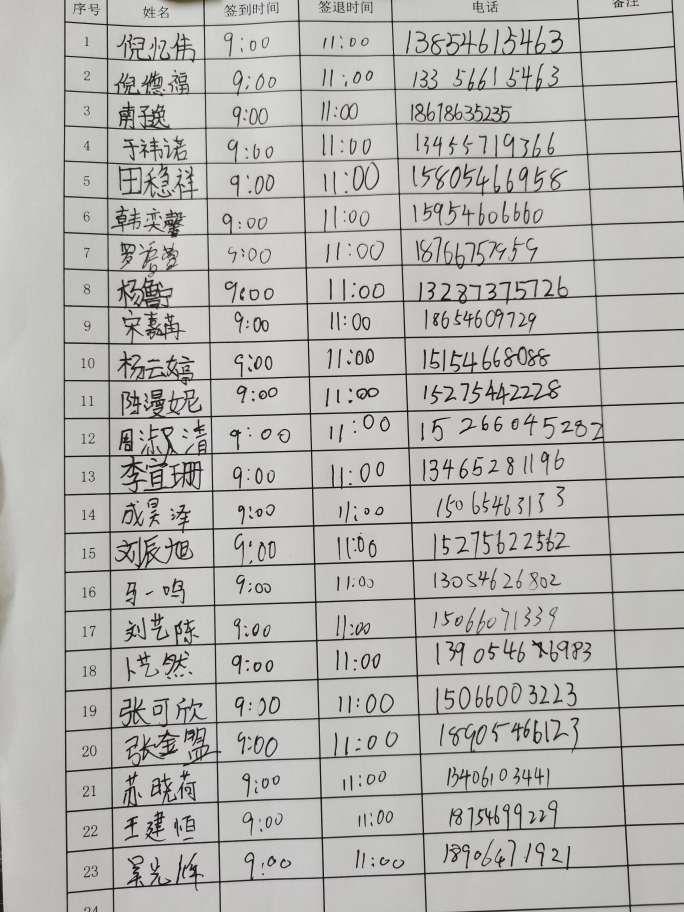 序号 姓名 签到时间 签退时间 电话 备注
1 倪忆伟 9:00 11:00 13854615463
2 倪德福 9:00 11:00 13356615463
3 南予逸 9:00 11:00 18678635235
4 于祎诺 9:00 11:00 13455719366
5 田稳祥 9:00 11:00 15805466958
6 韩奕馨 9:00 11:00 15954606660
7 9:00 11:00 18766757959
8 9:00 11:00 13287375726
9 宋嘉苒 9:00 11:00 18654609729
10 杨云婷 9:00 11:00 15154668088
11 陈漫妮 9:00 11:00 15275442228
12 周淑清 9:00 11:00 15266045282
13 李宜珊 9:00 11:00 13465281196
14 成昊泽 9:00 11:00 15065463133
15 刘辰旭 9:00 11:00 15275622562
16 马一鸣 9:00 11:00 13054626802
17 刘艺陈 9:00 11:00 15066071339
18 卜艺然 9:00 11:00 13905466983
19 张可欣 9:00 11:00 15066003223
20 张金盟 9:00 11:00 18905466123
21 苏晓荷 9:00 11:00 13406103441
22 王建恒 9:00 11:00 18754699229
23 9:00 11:00 18906471921
24